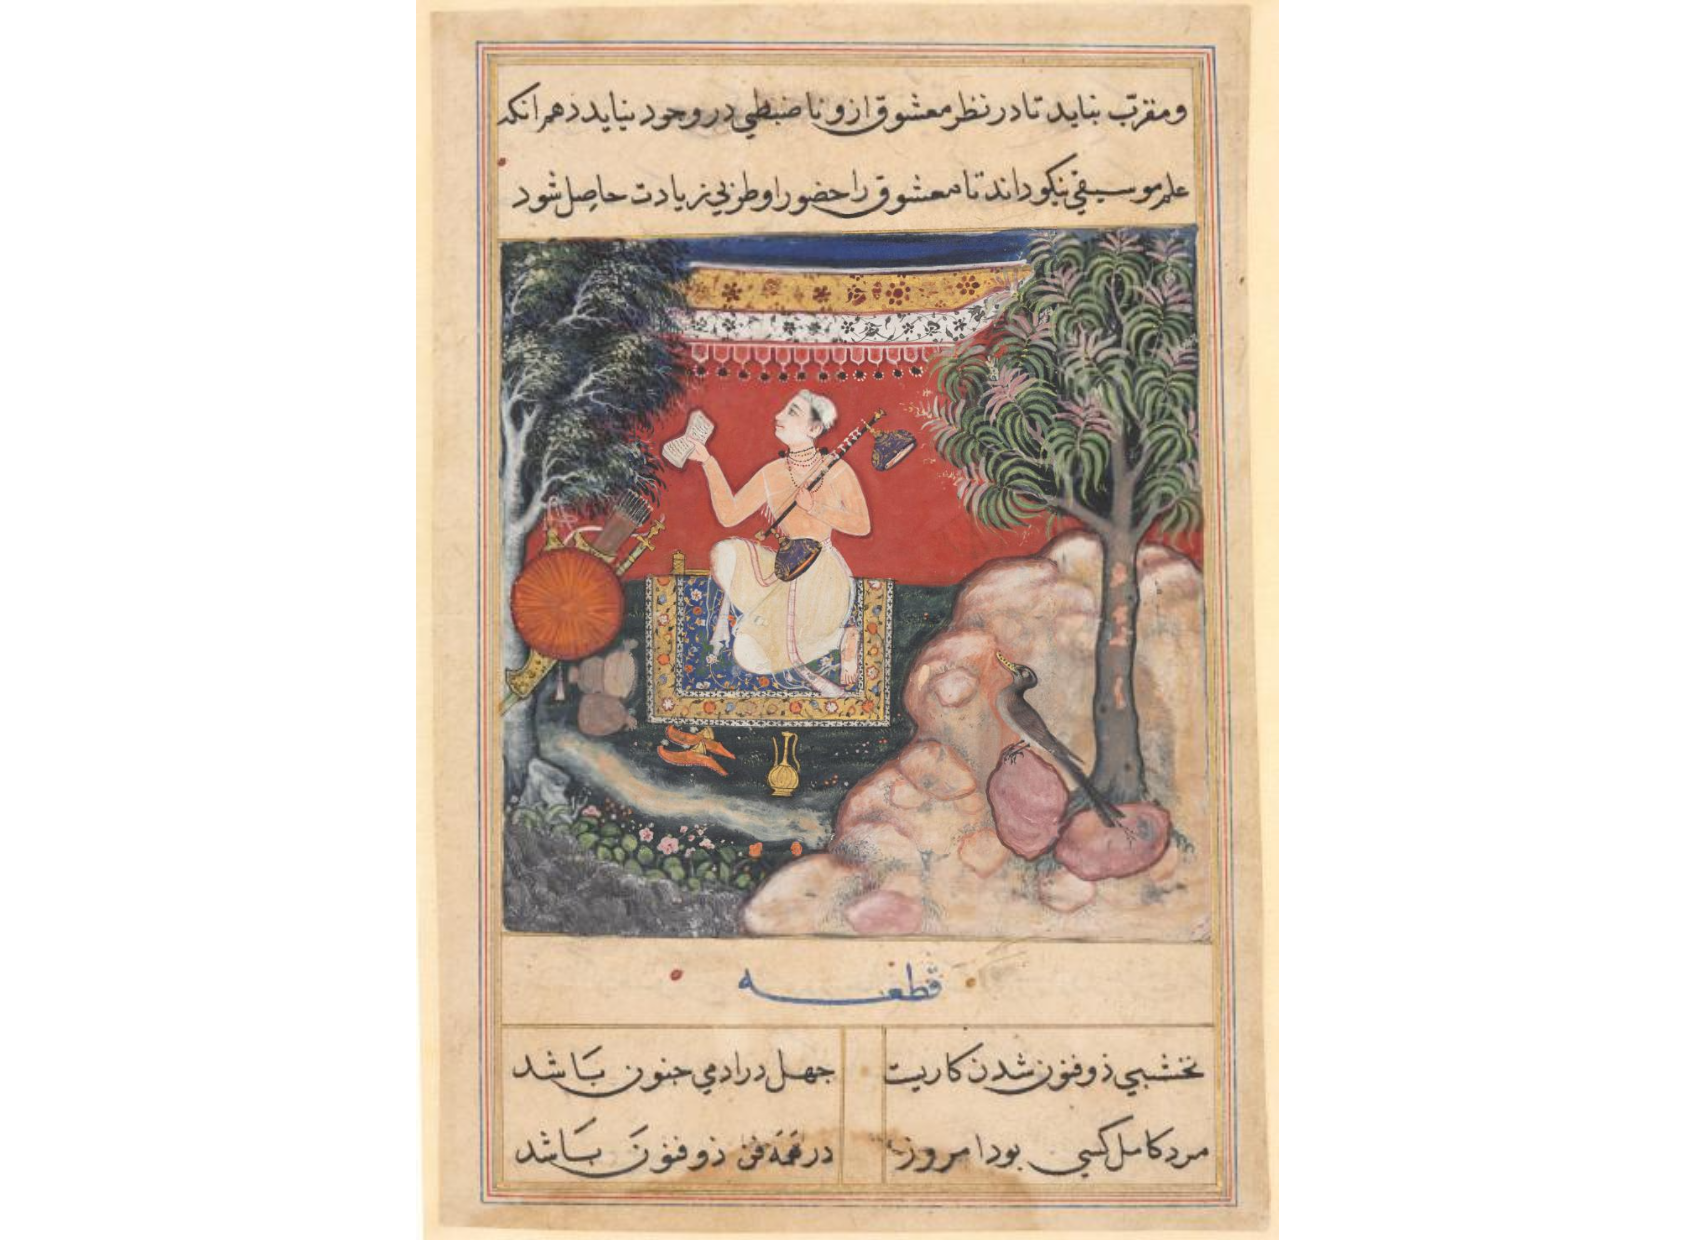 ومقرب بنايد تا در نظر معشوق ازو نا ضبطي در وجود نیاید دهم انکه
علم موسيقي نیکو داند تا معشوق را حضور او طربي زیادت حاصل شود
قطعه
نخشبي ذوفنون شدن کاریست
جهل در ادمي جنون باشد
مرد کامل کسي بود امروز
در همه فن ذوفنون باشد